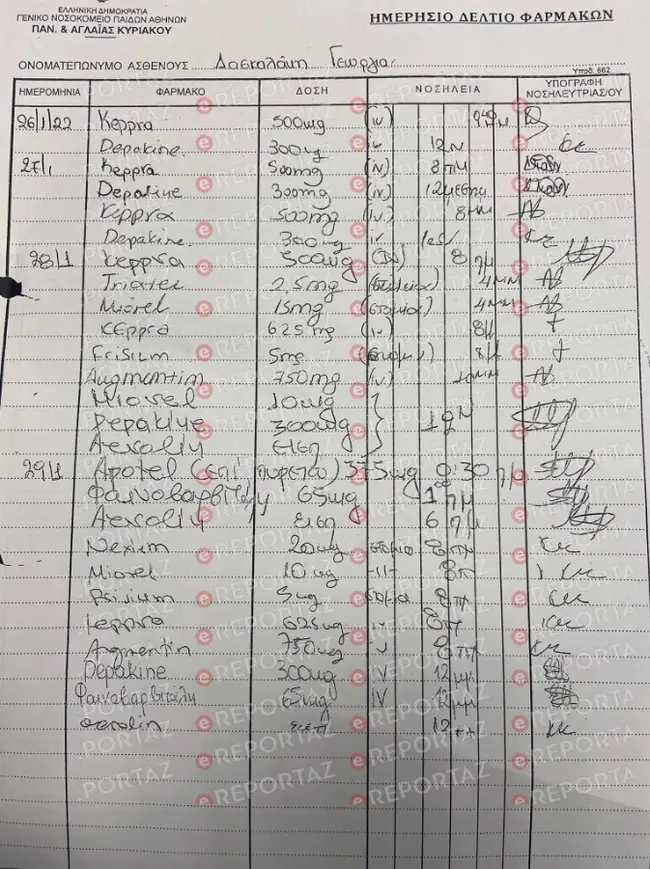 ΕΛΛΗΝΙΚΗ ΔΗΜΟΚΡΑΤΙΑ
ΓΕΝΙΚΟ ΝΟΣΟΚΟΜΕΙΟ ΠΑΙΔΩΝ ΑΘΗΝΩΝ
ΠΑΝ. & ΑΓΛΑΪΑΣ ΚΥΡΙΑΚΟΥ
ΗΜΕΡΗΣΙΟ ΔΕΛΤΙΟ ΦΑΡΜΑΚΩΝ
ΟΝΟΜΑΤΕΠΩΝΥΜΟ ΑΣΘΕΝΟΥΣ Δασκαλάκη Γεωργία
Υποδ. 662
ΗΜΕΡΟΜΗΝΙΑ ΦΑΡΜΑΚΟ ΔΟΣΗ ΝΟΣΗΛΕΙΑ ΥΠΟΓΡΑΦΗ ΝΟΣΗΛΕΥΤΡΙΑΣ/ΟΥ
26/1/22 Keppra 500mg (iv)
Depakine 300mg iv 12
27/1 Keppra 500mg (iv) 8 πμ
Depakine 300mg (iv) 12
Keppra 500mg (iv) 8
Depakine 300mg iv
28/1 Keppra 500mg (iv) 8 πμ
2,5mg 4μμ
15mg 4μμ
Keppra 625mg (iv) 8
Frisium 5mg 8
Augmentin 750mg (iv)
10mg
Depakine 300mg
Aerolin εισπ
29/1 Apotel (επί πυρετού) 375mg 0:30 πμ
Φαινοβαρβιτάλη 65mg 1 πμ
Aerolin εισπ 6 πμ
Nexium 20mg στόμα 8 πμ
10mg -11- 8π
5mg 8π
Keppra 625mg iv 8π
Augmentin 750mg iv 8
Depakine 300mg IV 12μμ
Φαινοβαρβιτάλη 65mg IV 12μμ
aerolin εισπ 12
e REPORTAZ